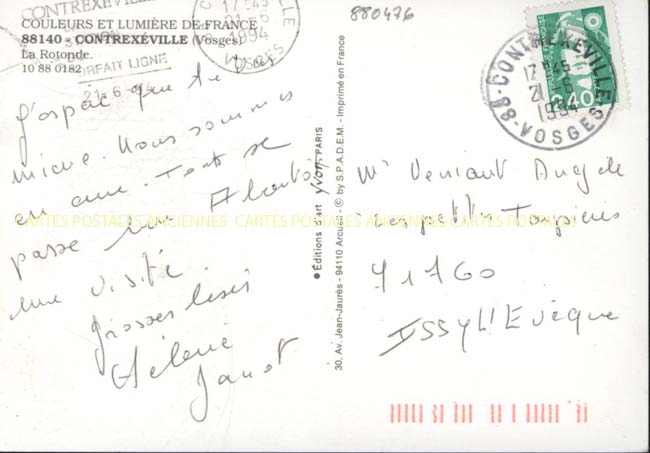 CONTREXÉVILLE
COULEURS ET LUMIÈRE DE FRANCE
88140 - CONTREXÉVILLE (Vosges)
La Rotonde.
10 88 0182
FORFAIT LIGNE
21-6-94
17H45
21-6
1994
VOSGES
880476
J'espère que tu vas
mieux. Nous sommes
en cure. Tout se
passe bien. A bientôt
une visite
Grosses bises
Hélène
Janot
● Éditions d'art yvon, PARIS
30, Av. Jean-Jaurès - 94110 Arcueil - © by S.P.A.D.E.M. - Imprimé en France
CONTREXÉVILLE
17H45
21-6
1994
88-VOSGES
2,40
Angèle
Les petits
71760
ISSY L'Evèque
CARTES POSTALES ANCIENNES CARTES POSTALES ANCIENNES CARTES POSTALES ANCIENNES